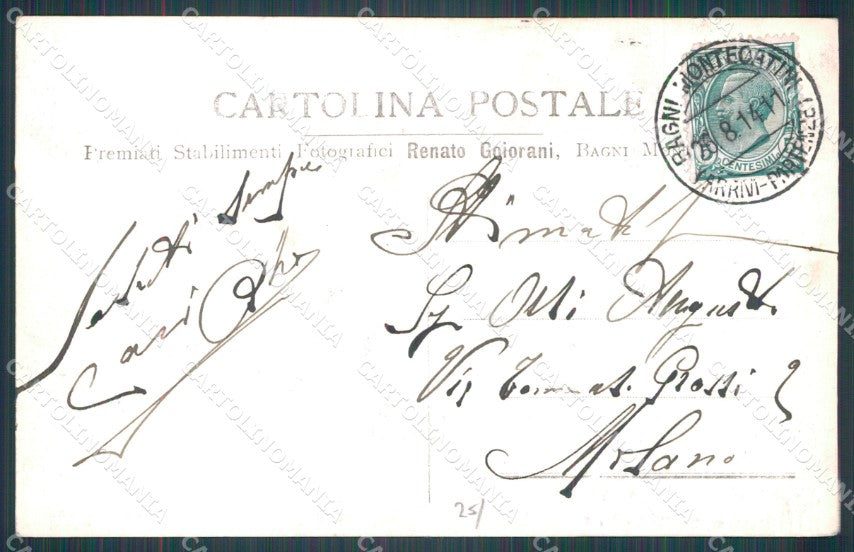 CARTOLINA POSTALE
Premiati Stabilimenti Fotografici Renato Goiorani, BAGNI M
BAGNI MONTECATINI
26.8.14.11
ARRIVI-PARTENZE
CENTESIMI
Saluti sempre
cari
Stimat
Sig Otti Augusto
Via Tommaso Grossi 2
Milano
25/
CARTOLINOMANIA